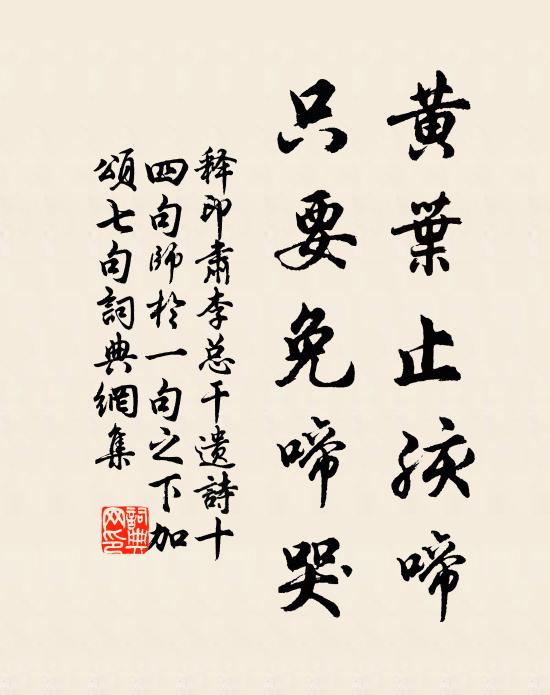 黄葉止孩啼
只要免啼哭
释印肃李总干遗詩十
四句師於一句之下加
頌七句詞典網集
詞典网印